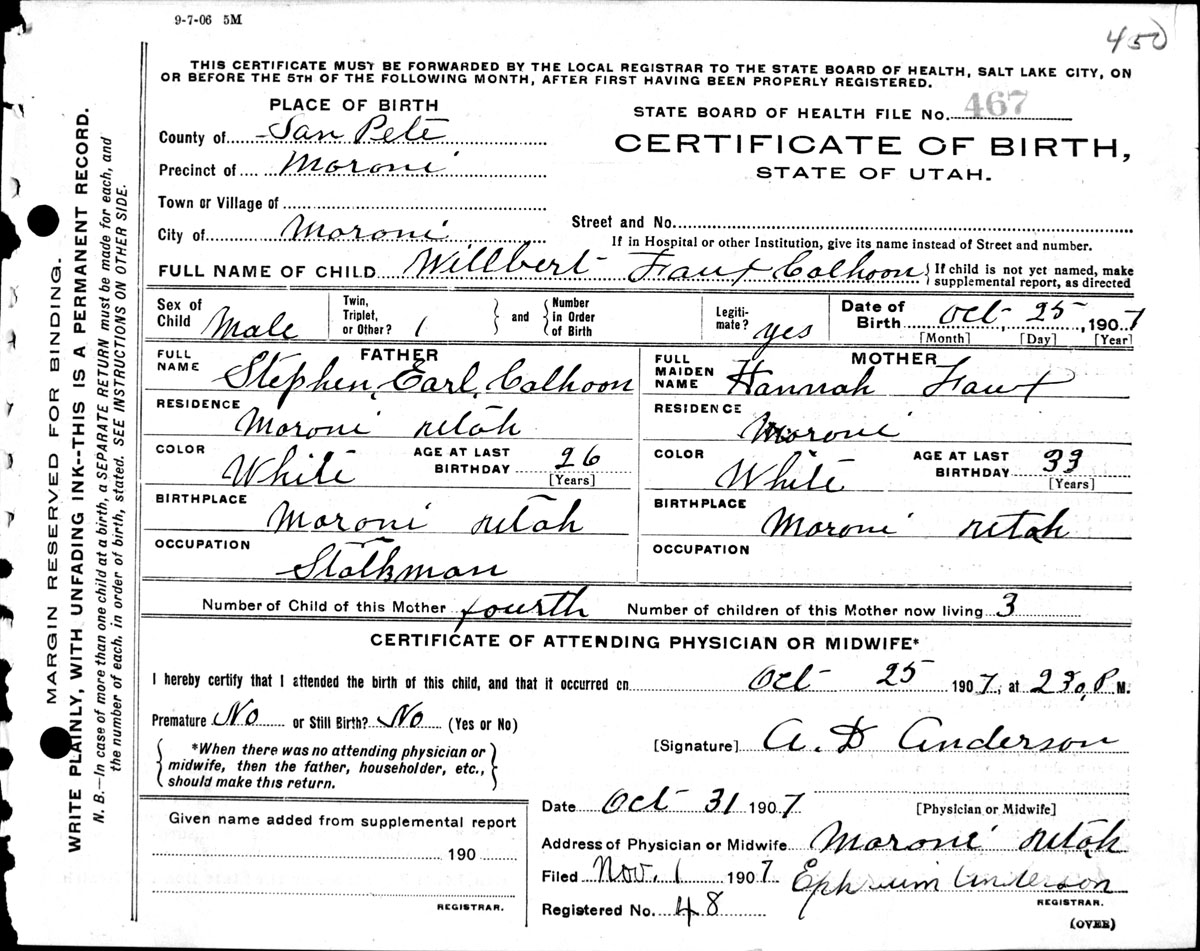 9-7-06 5M
450
THIS CERTIFICATE MUST BE FORWARDED BY THE LOCAL REGISTRAR TO THE STATE BOARD OF HEALTH, SALT LAKE CITY, ON
OR BEFORE THE 5TH OF THE FOLLOWING MONTH, AFTER FIRST HAVING BEEN PROPERLY REGISTERED.
PLACE OF BIRTH
County of San Pete
Precinct of Moroni
Town or Village of
City of Moroni
STATE BOARD OF HEALTH FILE No. 467
CERTIFICATE OF BIRTH,
STATE OF UTAH.
Street and No.
If in Hospital or other Institution, give its name instead of Street and number.
FULL NAME OF CHILD Willbert Faux Calhoon { If child is not yet named, make
supplemental report, as directed
Sex of Child Male
Twin, Triplet, or Other? 1 } and { Number in Order of Birth
Legiti-mate? yes
Date of Birth Oct 25, 1907
[Month] [Day] [Year]
FATHER
FULL NAME Stephen Earl Calhoon
RESIDENCE Moroni Utah
COLOR White AGE AT LAST BIRTHDAY 26 [Years]
BIRTHPLACE Moroni Utah
OCCUPATION Stolkman
MOTHER
FULL MAIDEN NAME Hannah Faux
RESIDENCE Moroni
COLOR White AGE AT LAST BIRTHDAY 33 [Years]
BIRTHPLACE Moroni Utah
OCCUPATION
Number of Child of this Mother fourth Number of children of this Mother now living 3
CERTIFICATE OF ATTENDING PHYSICIAN OR MIDWIFE*
I hereby certify that I attended the birth of this child, and that it occurred on Oct 25 1907, at 230 P M.
Premature No or Still Birth? No (Yes or No)
{ *When there was no attending physician or
midwife, then the father, householder, etc.,
should make this return. }
[Signature] A. D Anderson
Date Oct 31 1907 [Physician or Midwife]
Address of Physician or Midwife Moroni Utah
Filed Nov. 1 1907 Ephraim Anderson
REGISTRAR.
Registered No. 48
(OVER)
Given name added from supplemental report
190
REGISTRAR.
MARGIN RESERVED FOR BINDING.
WRITE PLAINLY, WITH UNFADING INK--THIS IS A PERMANENT RECORD.
N. B.—In case of more than one child at a birth, a SEPARATE RETURN must be made for each, and
the number of each, in order of birth, stated. SEE INSTRUCTIONS ON OTHER SIDE.